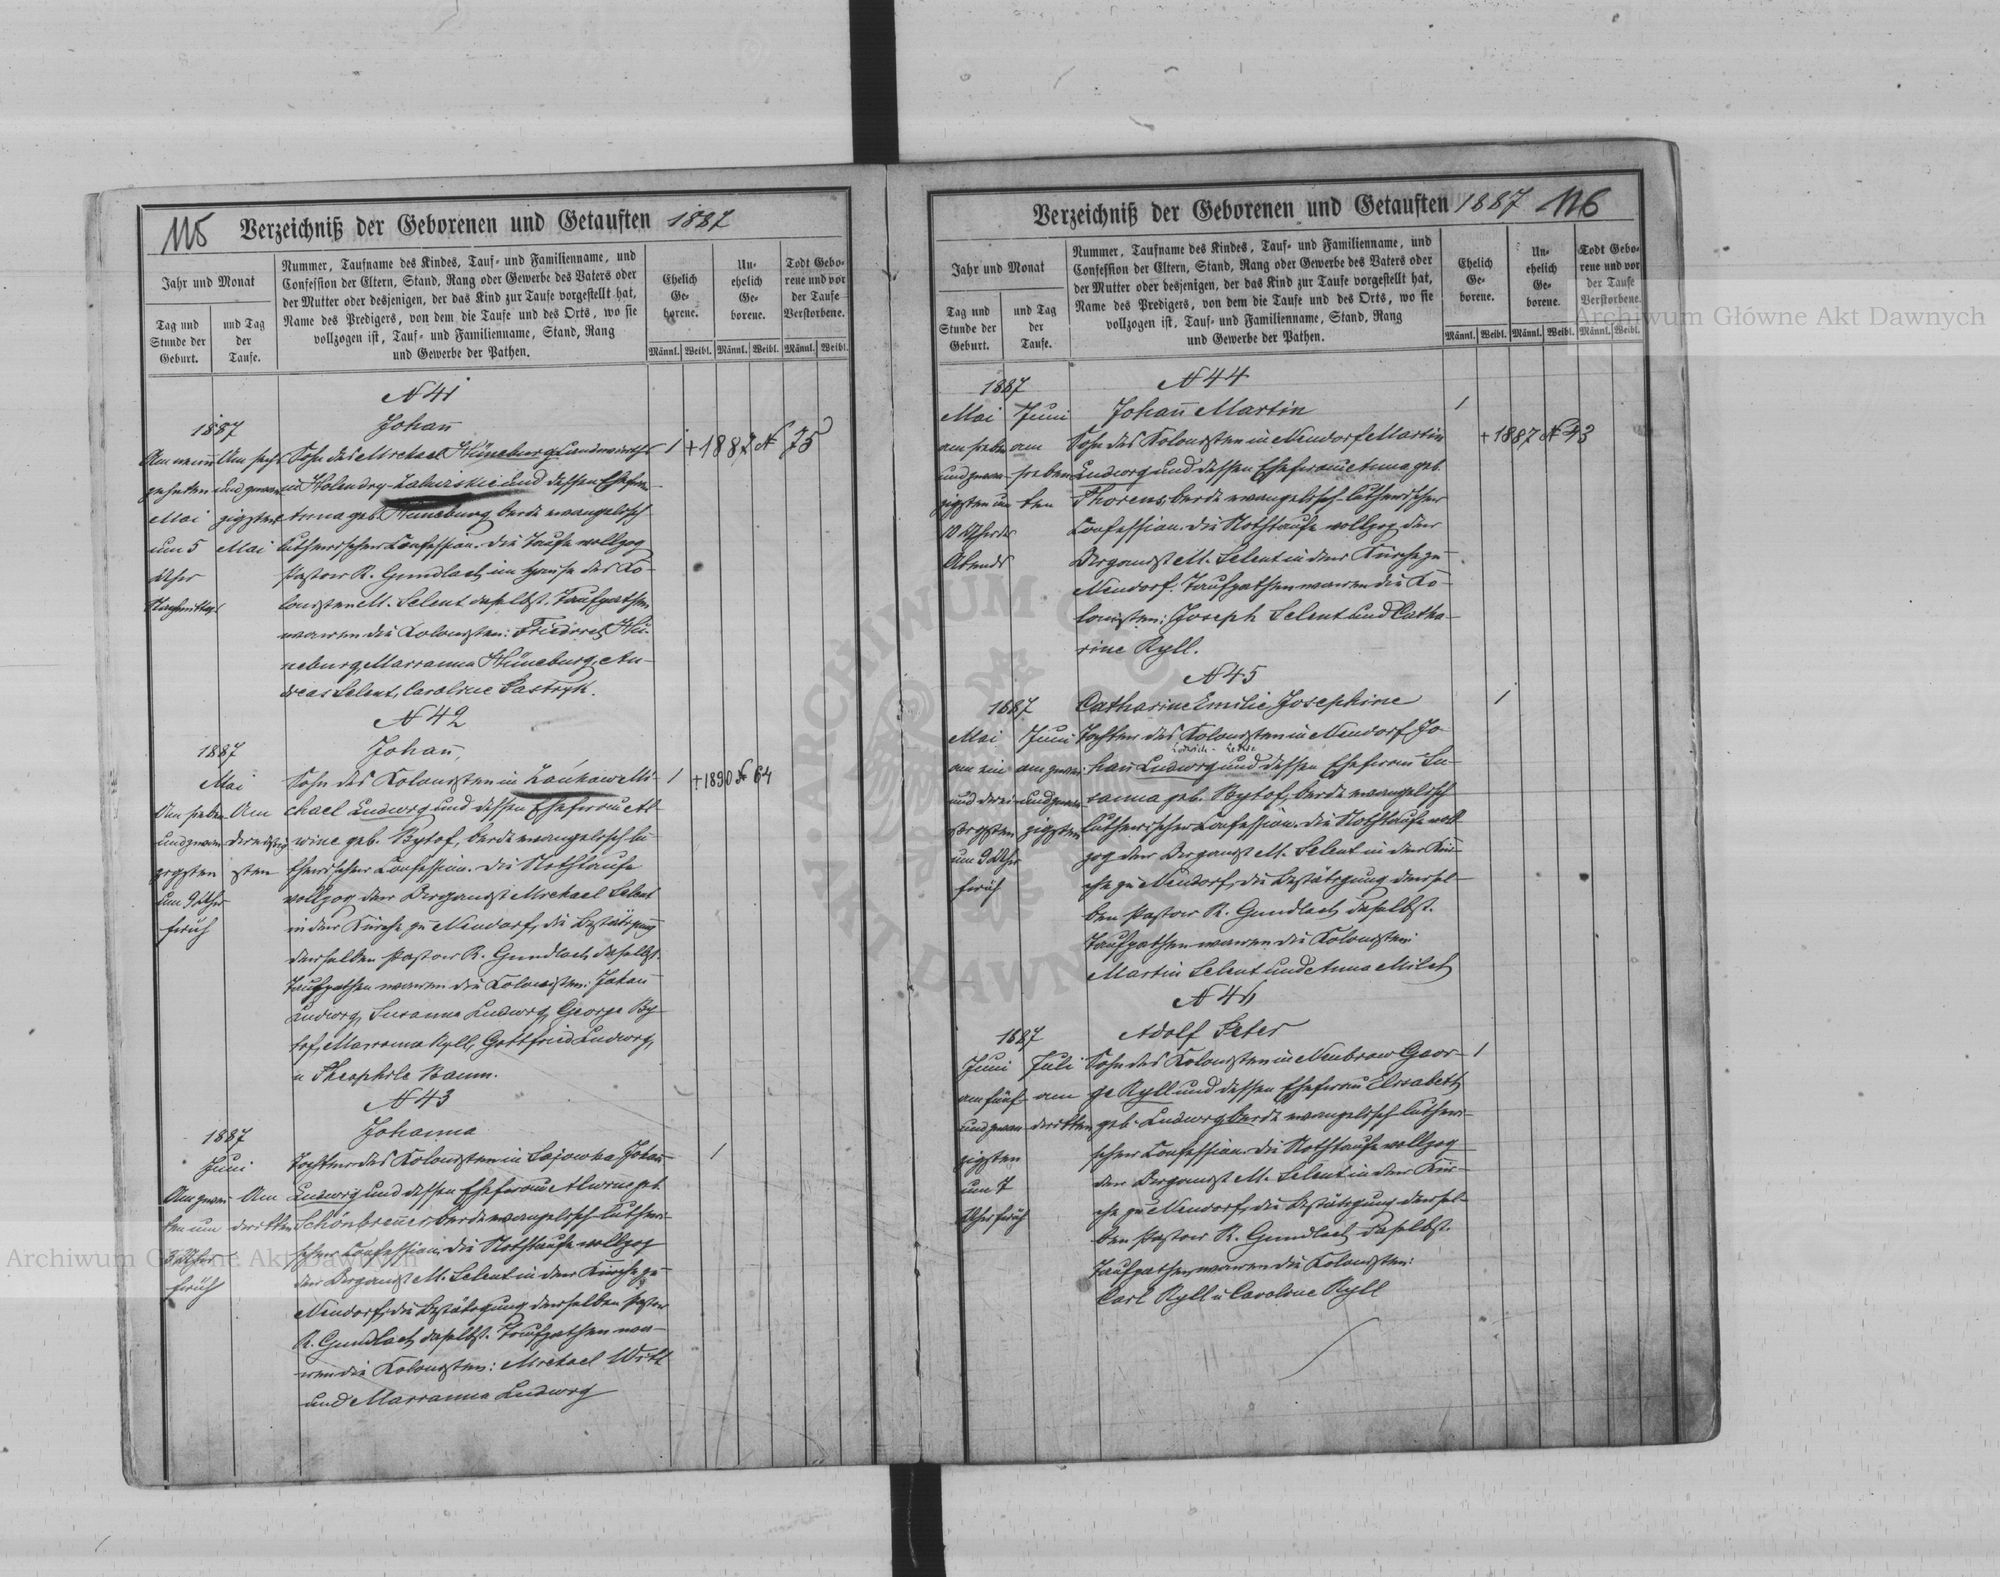 115 Verzeichniß der Geborenen und Getauften 1887
Jahr und Monat
Tag und
Stunde der
Geburt.
und Tag
der
Taufe.
Nummer, Taufname des Kindes, Tauf- und Familienname, und
Confession der Eltern, Stand, Rang oder Gewerbe des Vaters oder
der Mutter oder desjenigen, der das Kind zur Taufe vorgestellt hat,
Name des Predigers, von dem die Taufe und des Orts, wo sie
vollzogen ist, Tauf- und Familienname, Stand, Rang
und Gewerbe der Pathen.
Ehelich
Ge-
borene.
Un-
ehelich
Ge-
borene.
Todt Gebo-
rene und vor
der Taufe
Verstorbene.
Männl. Weibl. Männl. Weibl. Männl. Weibl.
N 41
1887
Johan̄
Am neun
zehnten
Mai
um 5
Uhr
Nachmittag
Am sechs
und zwan
zigsten
Mai
Sohn des Michael Hüneburg Landwirths
in Holendry- und dessen Ehefrau
Anna geb. Hüneburg beide evangelisch
lutherischer Confession. Die Taufe vollzog
Pastor R. Gundlach im Hause des Ko-
lonisten M. Selent daselbst. Taufpathen
waren die Kolonisten: Friedrich Hü-
neburg, Marianna Hüneburg, An-
dreas Selent, Caroline Pastryk.
1 + 1887 N 75
N 42
1887
Johan̄,
Mai
Am sieben
und zwan
zigsten
um 9 Uhr
früh
Am
dreißig
sten
Sohn des Kolonisten in Zankow Mi-
chael Ludwig und dessen Ehefrau Al-
wine geb. Bytof, beide evangelisch lu-
therischer Confession. Die Nothtaufe
vollzog der Organist Michael Selent
in der Kirche zu Neudorf, die Bestätigung
derselben Pastor R. Gundlach daselbst.
Taufpathen waren die Kolonisten: Johan̄
Ludwig, Susanna Ludwig, George By-
tof, Marianna Ryll, Gottfried Ludwig,
u Theophile Baum.
1 + 1890 N 64
N 43
1887
Johanna
Juni
Am zwei
ten um
3 Uhr
früh
Am
dritten
Tochter des Kolonisten in Sajowka Johan̄
Ludwig und dessen Ehefrau Alwine geb.
Schönbren̄er, beide evangelisch-lutheri-
scher Confession, die Nothtaufe vollzog
der Organist M. Selent in der Kirche zu
Neudorf, die Bestätigung derselben Pastor
R. Gundlach daselbst. Taufpathen wa-
ren die Kolonisten: Michael Witt
und Marianna Ludwig
1
Verzeichniß der Geborenen und Getauften 1887 116
Jahr und Monat
Tag und
Stunde der
Geburt.
und Tag
der
Taufe.
Nummer, Taufname des Kindes, Tauf- und Familienname, und
Confession der Eltern, Stand, Rang oder Gewerbe des Vaters oder
der Mutter oder desjenigen, der das Kind zur Taufe vorgestellt hat,
Name des Predigers, von dem die Taufe und des Orts, wo sie
vollzogen ist, Tauf- und Familienname, Stand, Rang
und Gewerbe der Pathen.
Ehelich
Ge-
borene.
Un-
ehelich
Ge-
borene.
Todt Gebo-
rene und vor
der Taufe
Verstorbene.
Männl. Weibl. Männl. Weibl. Männl. Weibl.
1887
N 44
Mai
am sieben
und zwan-
zigsten um
10 Uhr des
Abends
Juni
am
sieben
ten
Johan̄ Martin
Sohn des Kolonisten in Neudorf Martin
Ludwig und dessen Ehefrau Anna geb.
Thorens, beide evangelisch-lutherischer
Confession. Die Nothtaufe vollzog der
Organist M. Selent in der Kirche zu
Neudorf. Taufpathen waren die Ko-
lonisten: Joseph Selent und Catha-
rine Ryll.
1
+ 1887 N 43
N 45
1887
Mai
am ein
und drei-
ßigsten
um 9 Uhr
früh
Juni
am zwei
und zwan-
zigsten
Catharine Emilie Josephine
Tochter des Kolonisten in Neudorf Jo-
han̄ Ludwig und dessen Ehefrau Su-
sanna geb. Bytof, beide evangelisch
lutherischer Confession. Die Nothtaufe voll-
zog der Organist M. Selent in der Kir-
che zu Neudorf, die Bestätigung dersel-
ben Pastor R. Gundlach daselbst.
Taufpathen waren die Kolonisten:
Martin Selent und Anna Milch
1
N 46
1887
Juni
am fünf
und zwan
zigsten
um 7
Uhr früh
Juli
am
dritten
Adolf Peter
Sohn des Kolonisten in Neubrow Geor-
ge Ryll und dessen Ehefrau Elisabeth
geb. Ludwig beide evangelisch lutheri-
scher Confession. Die Nothtaufe vollzog
der Organist M. Selent in der Kir-
che zu Neudorf, die Bestätigung dersel-
ben Pastor R. Gundlach daselbst.
Taufpathen waren die Kolonisten:
Carl Ryll u Caroline Ryll
1
Archiwum Główne Akt Dawnych
Archiwum Główne Akt Dawnych